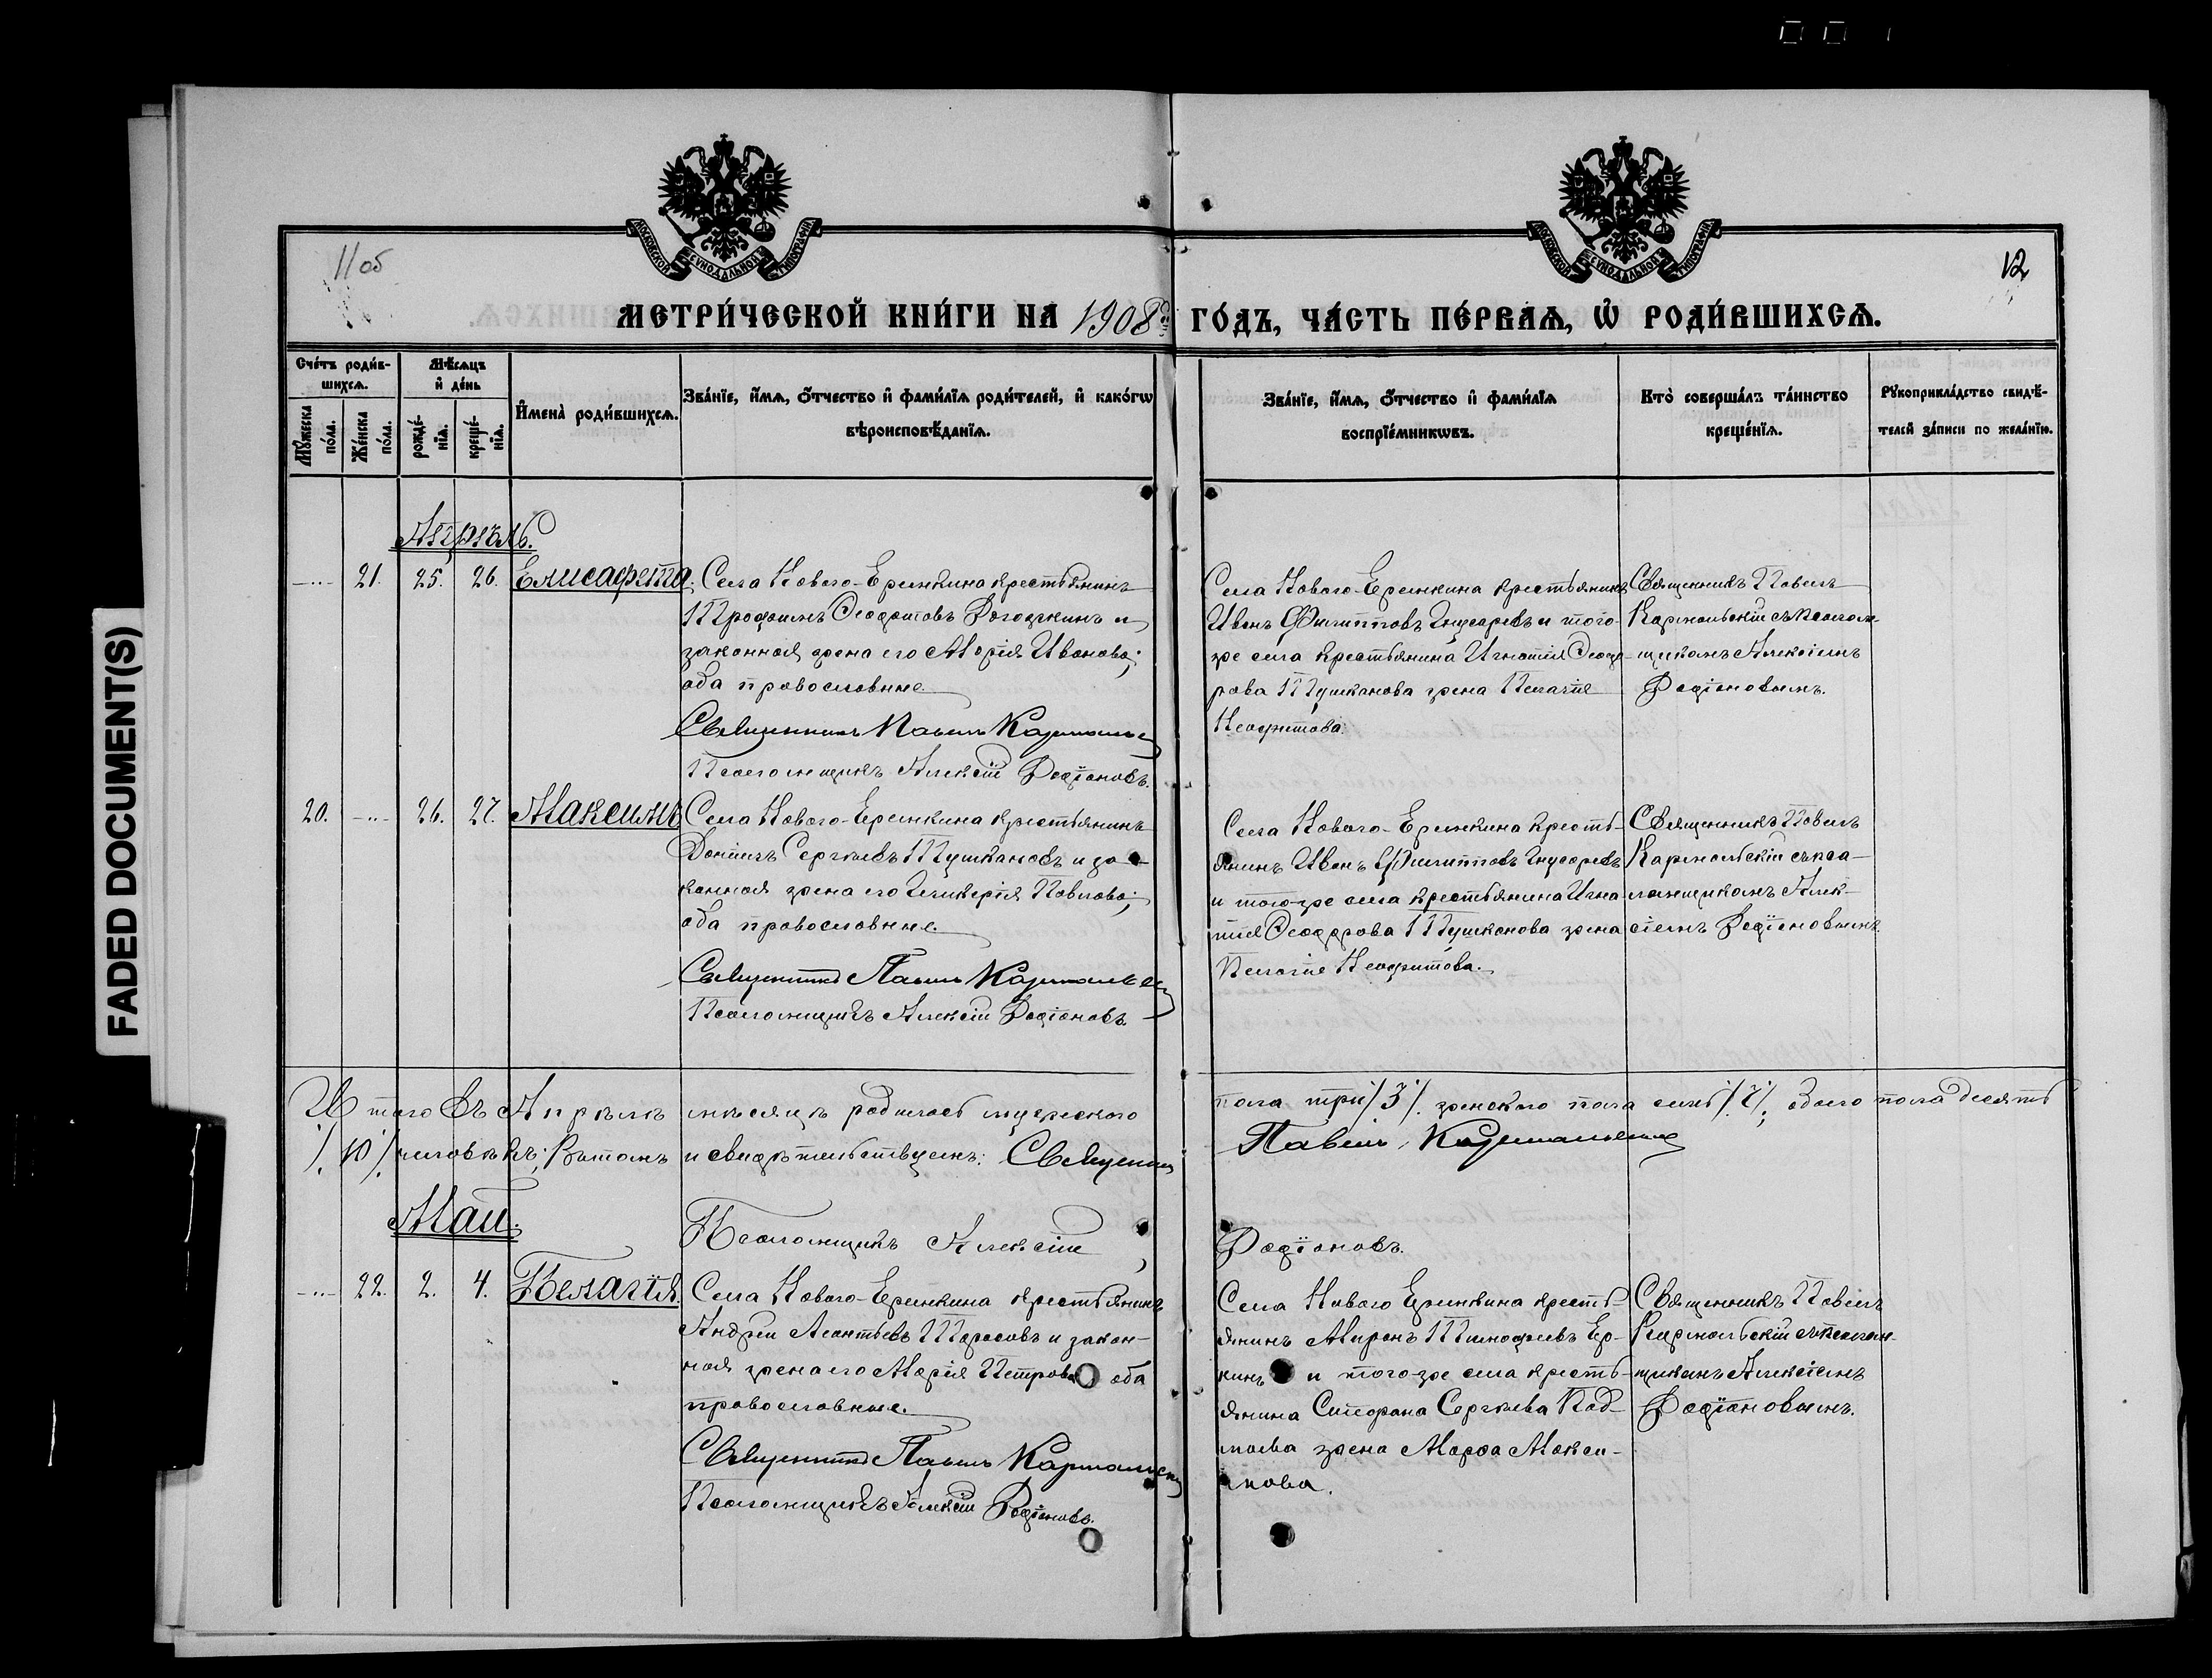 FADED DOCUMENT(S)
11об
12
МОСКОВСКОЙ СѴНОДАЛЬНОЙ ТИПОГРАФІИ
МОСКОВСКОЙ СѴНОДАЛЬНОЙ ТИПОГРАФІИ
МЕТРИ́ЧЕСКОЙ КНИ́ГИ НА 1908й ГО́ДЪ, ЧА́СТЬ ПЕ́РВАѦ, Ѡ҆ РОДИ́ВШИХСѦ.
Сче́тъ роди́в-
шихсѧ.
Мꙋ́жеска по́ла.
Же́нска по́ла.
Мѣ́сѧцъ
и҆ де́нь
рожде́-
нїѧ.
креще́-
нїѧ.
И҆мена̀ роди́вшихсѧ.
Зва́нїе, и҆́мѧ, ѻ҆́тчество и҆ фами́лїѧ роди́телей, и҆ како́гѡ
вѣроисповѣ́данїѧ.
Зва́нїе, и҆́мѧ, ѻ҆́тчество и҆ фами́лїѧ
воспрїе́мникѡвъ.
Кто̀ соверша́лъ та́инство
креще́нїѧ.
Рꙋкоприкла́дство свидѣ́-
телей за́писи по жела́нїю.
Апрѣль.
21. 25. 26. Елисафета.
Села Нового-Еремкина крестьянинъ
Трофимъ Ѳеодотовъ Рогожкинъ и
законная жена его Марія Иванова;
оба православные.
Священникъ Павелъ Кармальск
Псаломщикъ Алексій Родіоновъ.
Села Нового-Еремкина крестьянинъ
Иванъ Филипповъ и того-
же села крестьянина Игнатія Ѳеодо-
рова Тушканова жена Пелагія
Неофитова.
Священникъ Павелъ
Кармальскій съ псалом-
щикомъ Алексіемъ
Родіоновымъ.
20. 26. 27. Максимъ
Села Нового-Еремкина крестьянинъ
Даніилъ Сергѣевъ Тушкановъ и за-
конная жена его Гликерія Павлова;
оба православные.
Священникъ Павелъ Кармальск
Псаломщикъ Алексій Родіоновъ.
Села Нового-Еремкина кресть-
янинъ Иванъ Филипповъ
и того-же села крестьянина Игна
тія Ѳеодорова Тушканова жена
Пелагія Неофитова.
Священникъ Павелъ
Кармальскій съ пса-
ломщикомъ Алек-
сіемъ Родіоновымъ.
Итого въ Апрѣлѣ мѣсяцѣ родилось мужескаго пола три /3/. женскаго пола семь /7/, обоего пола десять
/10/ человѣкъ; въ томъ и свидѣтельствуемъ: Священник Павелъ Кармальскій
Май.
Псаломщикъ Алексій Родіоновъ.
22. 2. 4. Пелагія.
Села Нового-Еремкина крестьянинъ
Андрей Леонтьевъ Тарасовъ и закон-
ная жена его Марія Петрова оба
православные.
Священникъ Павелъ Кармальск
Псаломщикъ Алексій Родіоновъ.
Села Нового Еремкина кресть-
янинъ Миронъ Тимофеевъ Ер-
кинъ и того-же села кресть-
янина Стефана Сергѣева
жена Марѳа Макси-
мова.
Священникъ Павелъ
Кармальскій съ псалом-
щикомъ Алексіемъ
Родіоновымъ.